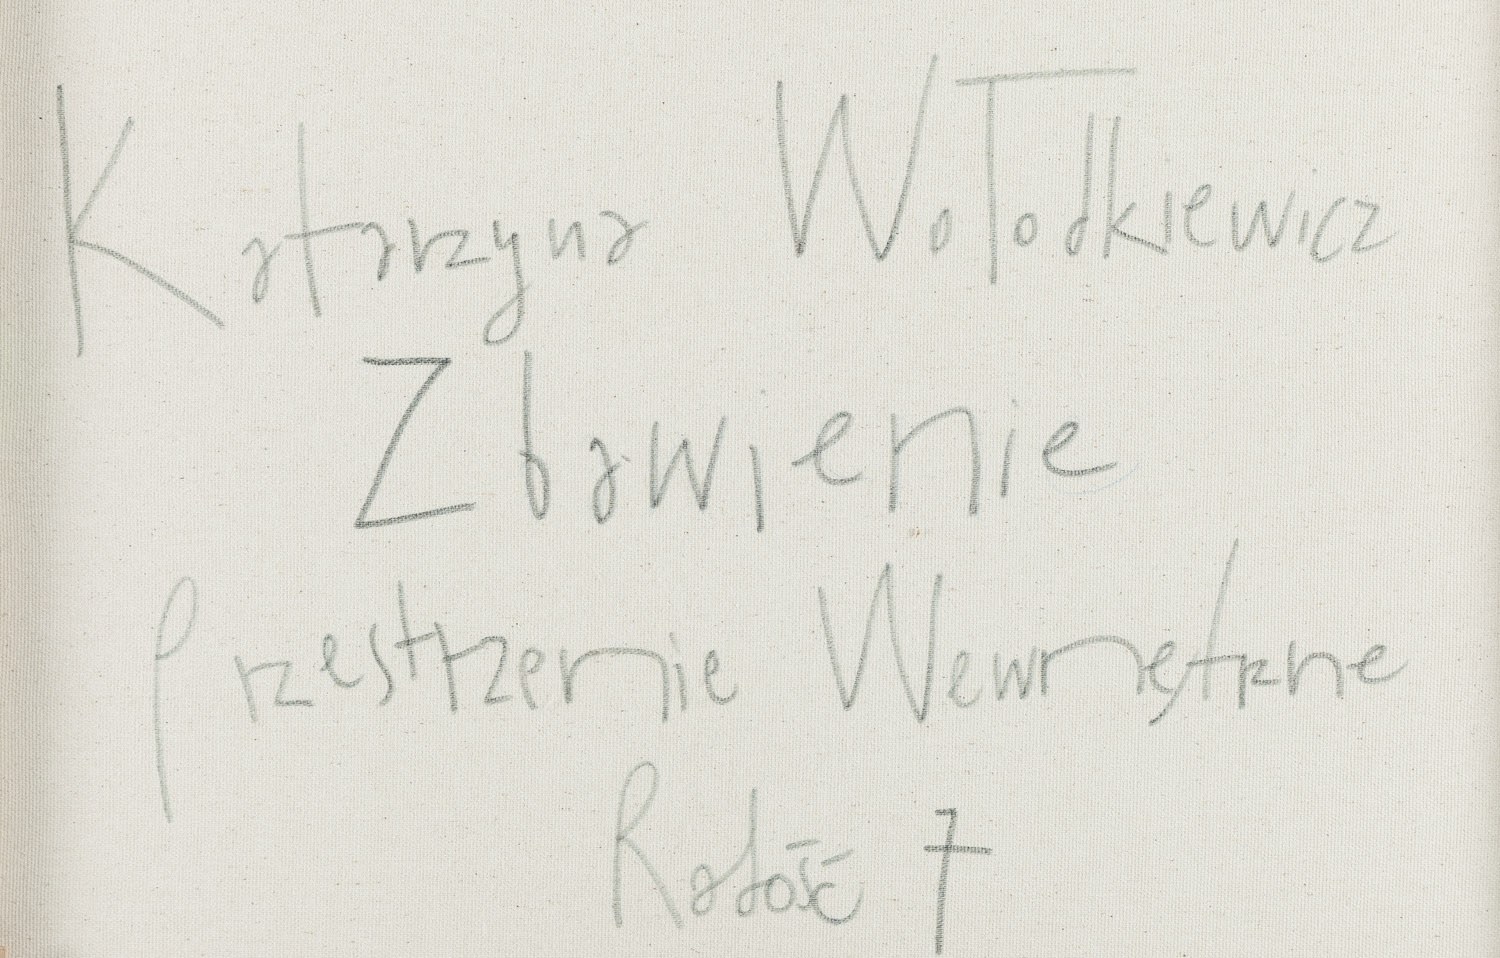 Katarzyna Wołodkiewicz
Zbawienie
Przestrzenie Wewnętrzne
Radość 7